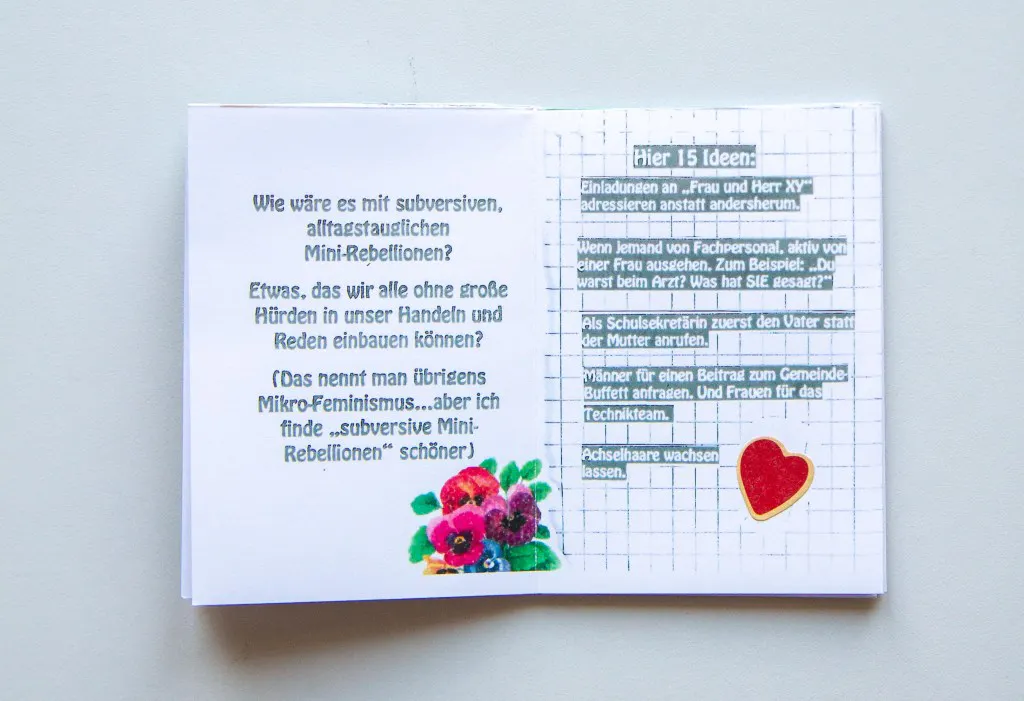 Wie wäre es mit subversiven,
alltagstauglichen
Mini-Rebellionen?
Etwas, das wir alle ohne große
Hürden in unser Handeln und
Reden einbauen können?
(Das nennt man übrigens
Mikro-Feminismus...aber ich
finde „subversive Mini-
Rebellionen“ schöner)
Hier 15 Ideen:
Einladungen an „Frau und Herr XY“
adressieren anstatt andersherum.
Wenn jemand von Fachpersonal, aktiv von
einer Frau ausgehen. Zum Beispiel: „Du
warst beim Arzt? Was hat SIE gesagt?“
Als Schulsekretärin zuerst den Vater statt
der Mutter anrufen.
Männer für einen Beitrag zum Gemeinde-
Buffett anfragen. Und Frauen für das
Technikteam.
Achselhaare wachsen
lassen.